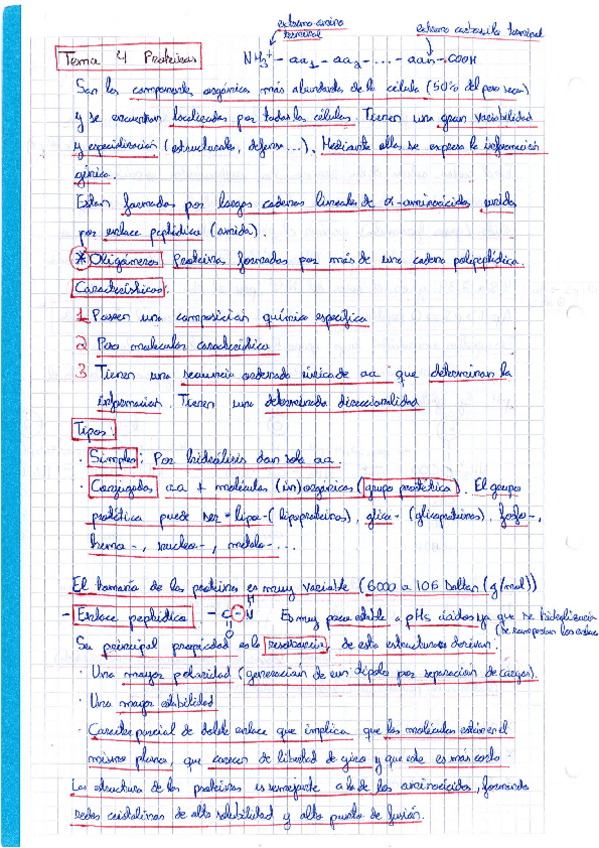 extremo amino terminal
extremo carboxilo terminal
Tema 4 Proteínas
NH3+ - aa1 - aa2 - ... - aan - COOH
Son los componentes orgánicos más abundantes de la célula (50% del peso seco)
y se encuentran localizadas por todas las células. Tienen una gran variabilidad
y especialización (estructurales, defensa ...). Mediante ellas se expresa la información
génica.
Están formadas por largas cadenas lineales de α-aminoácidos unidos
por enlace peptídico (amida).
* Oligómeros Proteína formadas por más de una cadena polipeptídica.
Características:
1 Poseen una composición química específica
2 Peso molecular característico
3 Tienen una secuencia ordenada única de aa que determinan la
información. Tienen una determinada direccionalidad
Tipos:
· Simples: Por hidrólisis dan solo aa.
· Conjugadas aa + moléculas (in)orgánicas (grupo prostético). El grupo
prostético puede ser = lipo-(lipoproteínas), glico- (glicoproteínas), fosfo-,
hemo-, nucleo-, metalo-...
El tamaño de las proteínas es muy variable (6000 a 106 Dalton (g/mol))
- Enlace peptídico - C - N Es muy poco estable a pHs ácidos ya que se hidroliza
H
O
(se rompen los enlaces
Su principal propiedad es la resonancia, de esta estructura derivan:
· Una mayor polaridad (generación de un dipolo por separación de cargas).
· Una mayor estabilidad
· Carácter parcial de doble enlace que implica que las moléculas estén en el
mismo plano, que carecen de libertad de giro y que este es más corto
Las estructura de las proteínas es semejante a la de los aminoácidos, formando
redes cristalinas de alta solubilidad y alto punto de fusión.